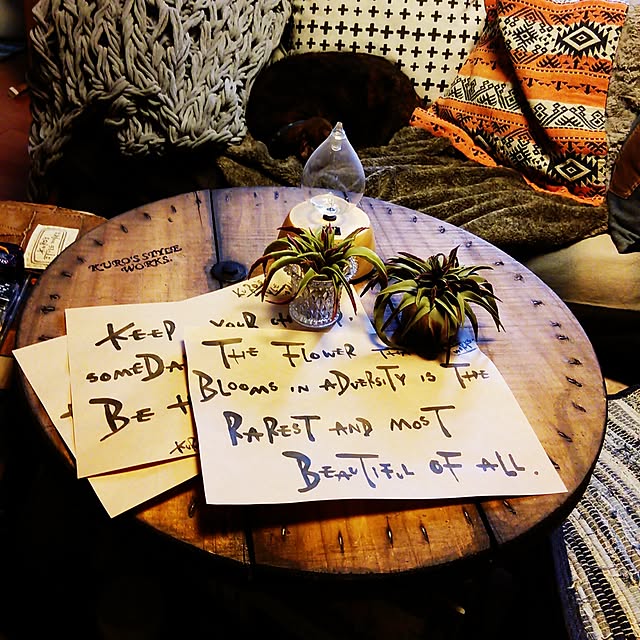 KURO'S STYLE
WORKS.
KEEP YOUR
SOMEDA
BE
THE FLOWER THAT
BLOOMS IN ADVERSITY IS THE
RAREST AND MOST
BEAUTIFUL OF ALL.